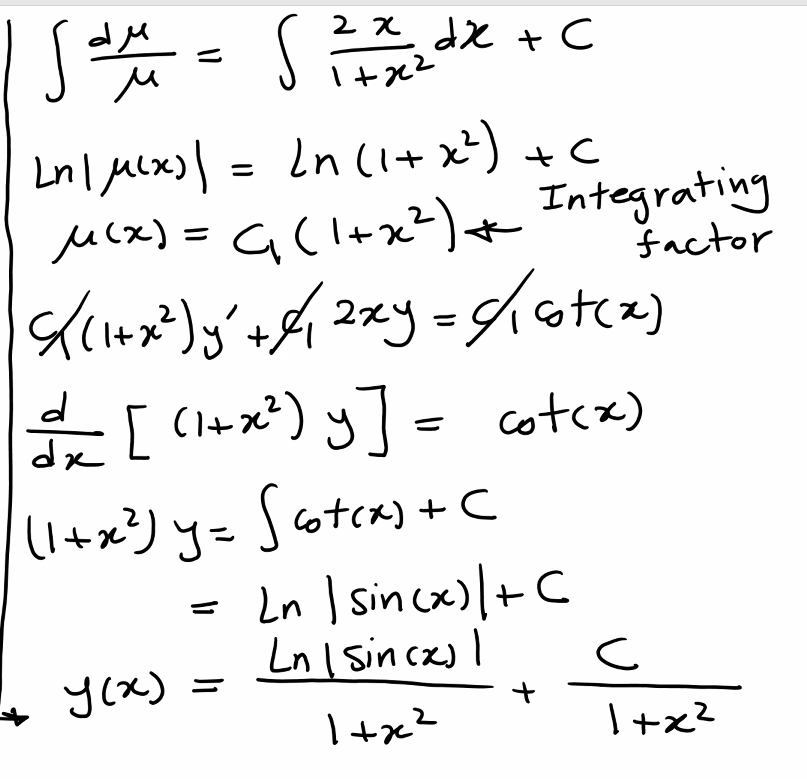 ∫ dμ/μ = ∫ 2x/(1+x²) dx + C
Ln|μ(x)| = Ln(1+x²) + C
μ(x) = C₁(1+x²) ← Integrating factor
C₁(1+x²)y' + C₁ 2xy = C₁ cot(x)
d/dx [(1+x²) y] = cot(x)
(1+x²) y = ∫ cot(x) + C
= N |sin(x)| + C
y(x) = Ln|sin(x)|/(1+x²) + C/(1+x²)